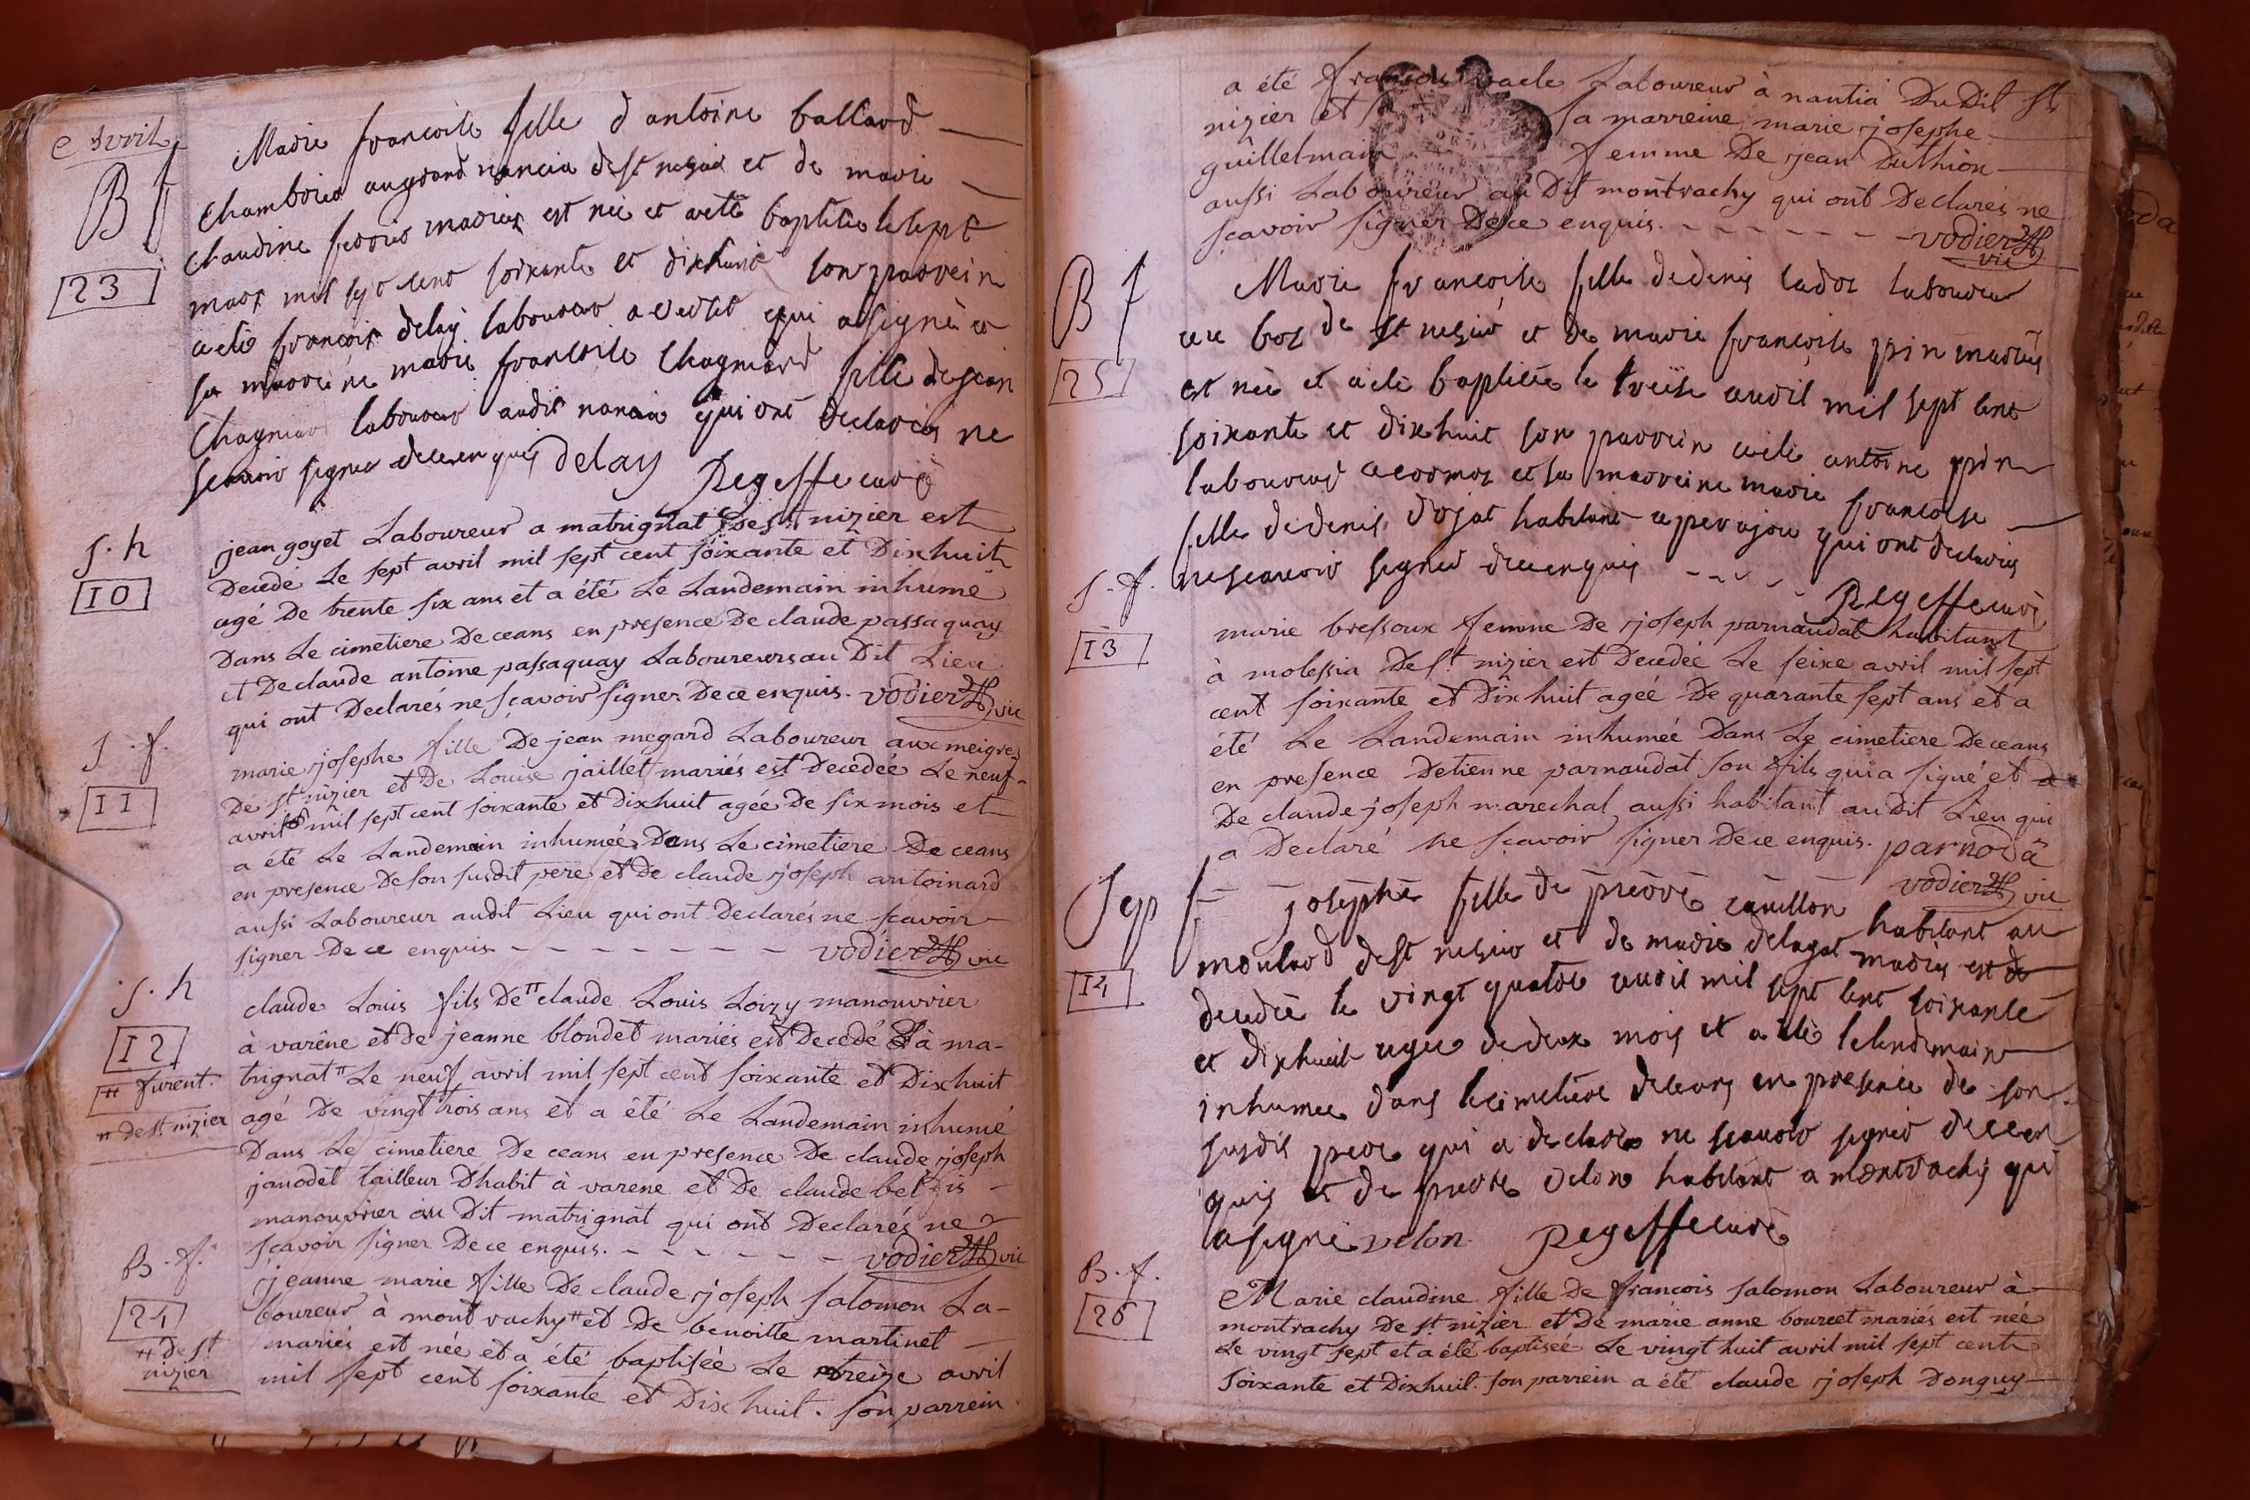 e avril
B f
23
Marie francoise fille d antoine balland
Chambrier augrand nancia de st nesier et de marie
Claudine ferrier mariez est nee et aeté baptisée le sept
mars mil sept cent soixante et dixhuit son parrein
aeté francois delay laboureur a qui asigné et
sa marreine marie francoise Chagniard fille dejean
Chagniard laboureur audit nancia qui ont declarés ne
scavoir signer decerenquis delay Regeffe curé
S. h
10
jean goyet Laboureur a matrignat De st nizier est
Decedé Le sept avril mil sept cent soixante et Dixhuit
agé De trente six ans et a été Le Landemain inhumé
Dans Le cimetiere De ceans en presence De claude passaquay
et De claude antoine passaquay Laboureurs au Dit Lieu
qui ont Declarés ne sçavoir signer De ce enquis. vodier vic
S. f.
11
marie josephe fille De jean megard Laboureur aux meigres
De st nizier et De Louise jaillet mariés est Decedée Le neuf
avril mil sept cent soixante et dixhuit agée De six mois et
a été Le Landemain inhumée Dans Le cimetiere De ceans
en presence De son susdit pere et De claude joseph antoinard
aussi Laboureur audit Lieu qui ont Declarés ne scavoir
signer De ce enquis - - - - - - - vodier vic
S. h
12
# furent.
# de st nizier
claude Louis fils De # claude Louis Loizy manouvrier
à varêne et De jeanne blondet mariés est Decedé à ma-
trignat # Le neuf avril mil sept cent soixante et Dixhuit
agé De vingt trois ans et a été Le Landemain inhumé
Dans Le cimetiere De ceans en presence De claude joseph
janodet tailleur Dhabit à varene et De claude
manouvrier au Dit matrignat qui ont Declarés ne
sçavoir signer De ce enquis. - - - - - - vodier vic
B. f.
24
# de st
nizier
jeanne marie fille De claude joseph Salomon La-
boureur à montrachy # et De benoitte martinet
mariés est née et a été baptisée Le treize avril
mil sept cent soixante et Dixhuit. son parrein
a été francois Laboureur à nantia Du Dit st
nizier et sa marreine marie josephe
guillelmain femme De jean Duthion
aussi Laboureur au Dit montrachy qui ont Declarés ne
sçavoir signer De ce enquis. - - - - - - - vodier
vic
B f
25
Marie francoise fille dedenis cador laboureur
au bos de st nesier et de marie francoise pin mariés
est née et aeté baptisée le treise avril mil sept cent
soixante et dixhuit son parrein aeté antoine pin
laboureur acormoz et sa marreine marie francoise
fille dedenis dojat habitant a perajou qui ont declarés
nescavoir signer decerenquis - - - - - Regeffe curé
S. f.
13
marie bressoux femme De joseph parnaudat habitant
à molessia De st nizier est Decedée Le seize avril mil sept
cent soixante et Dixhuit agée De quarante sept ans et a
été Le Landemain inhumée Dans Le cimetiere De ceans
en presence Detienne parnaudat son fils qui a signé et
De claude joseph marechal aussi habitant au dit Lieu qui
a Declaré ne sçavoir signer De ce enquis. parnodâ
vodier vic
Sep f
14
josephe fille de pierre cavillon habitant au
moulard de st nesier et de marie delayat mariés est
decedée le vingt quatre avril mil sept cent soixante
et dixhuit agée dedeux mois et a été lelendemain
inhumée dans lecimetiere deceans en presence de son
susdit pere qui a declaré ne scavoir signer decer
quis et de pierre velon habitant a montrachy qui
asigné velon Regeffe curé
B. f.
26
Marie claudine fille De francois salomon Laboureur à
montrachy De st nizier et De marie anne bourcet mariés est née
Le vingt sept et a été baptisée Le vingt huit avril mil sept cent
soixante et Dixhuit. son parrein a été claude joseph Donguy